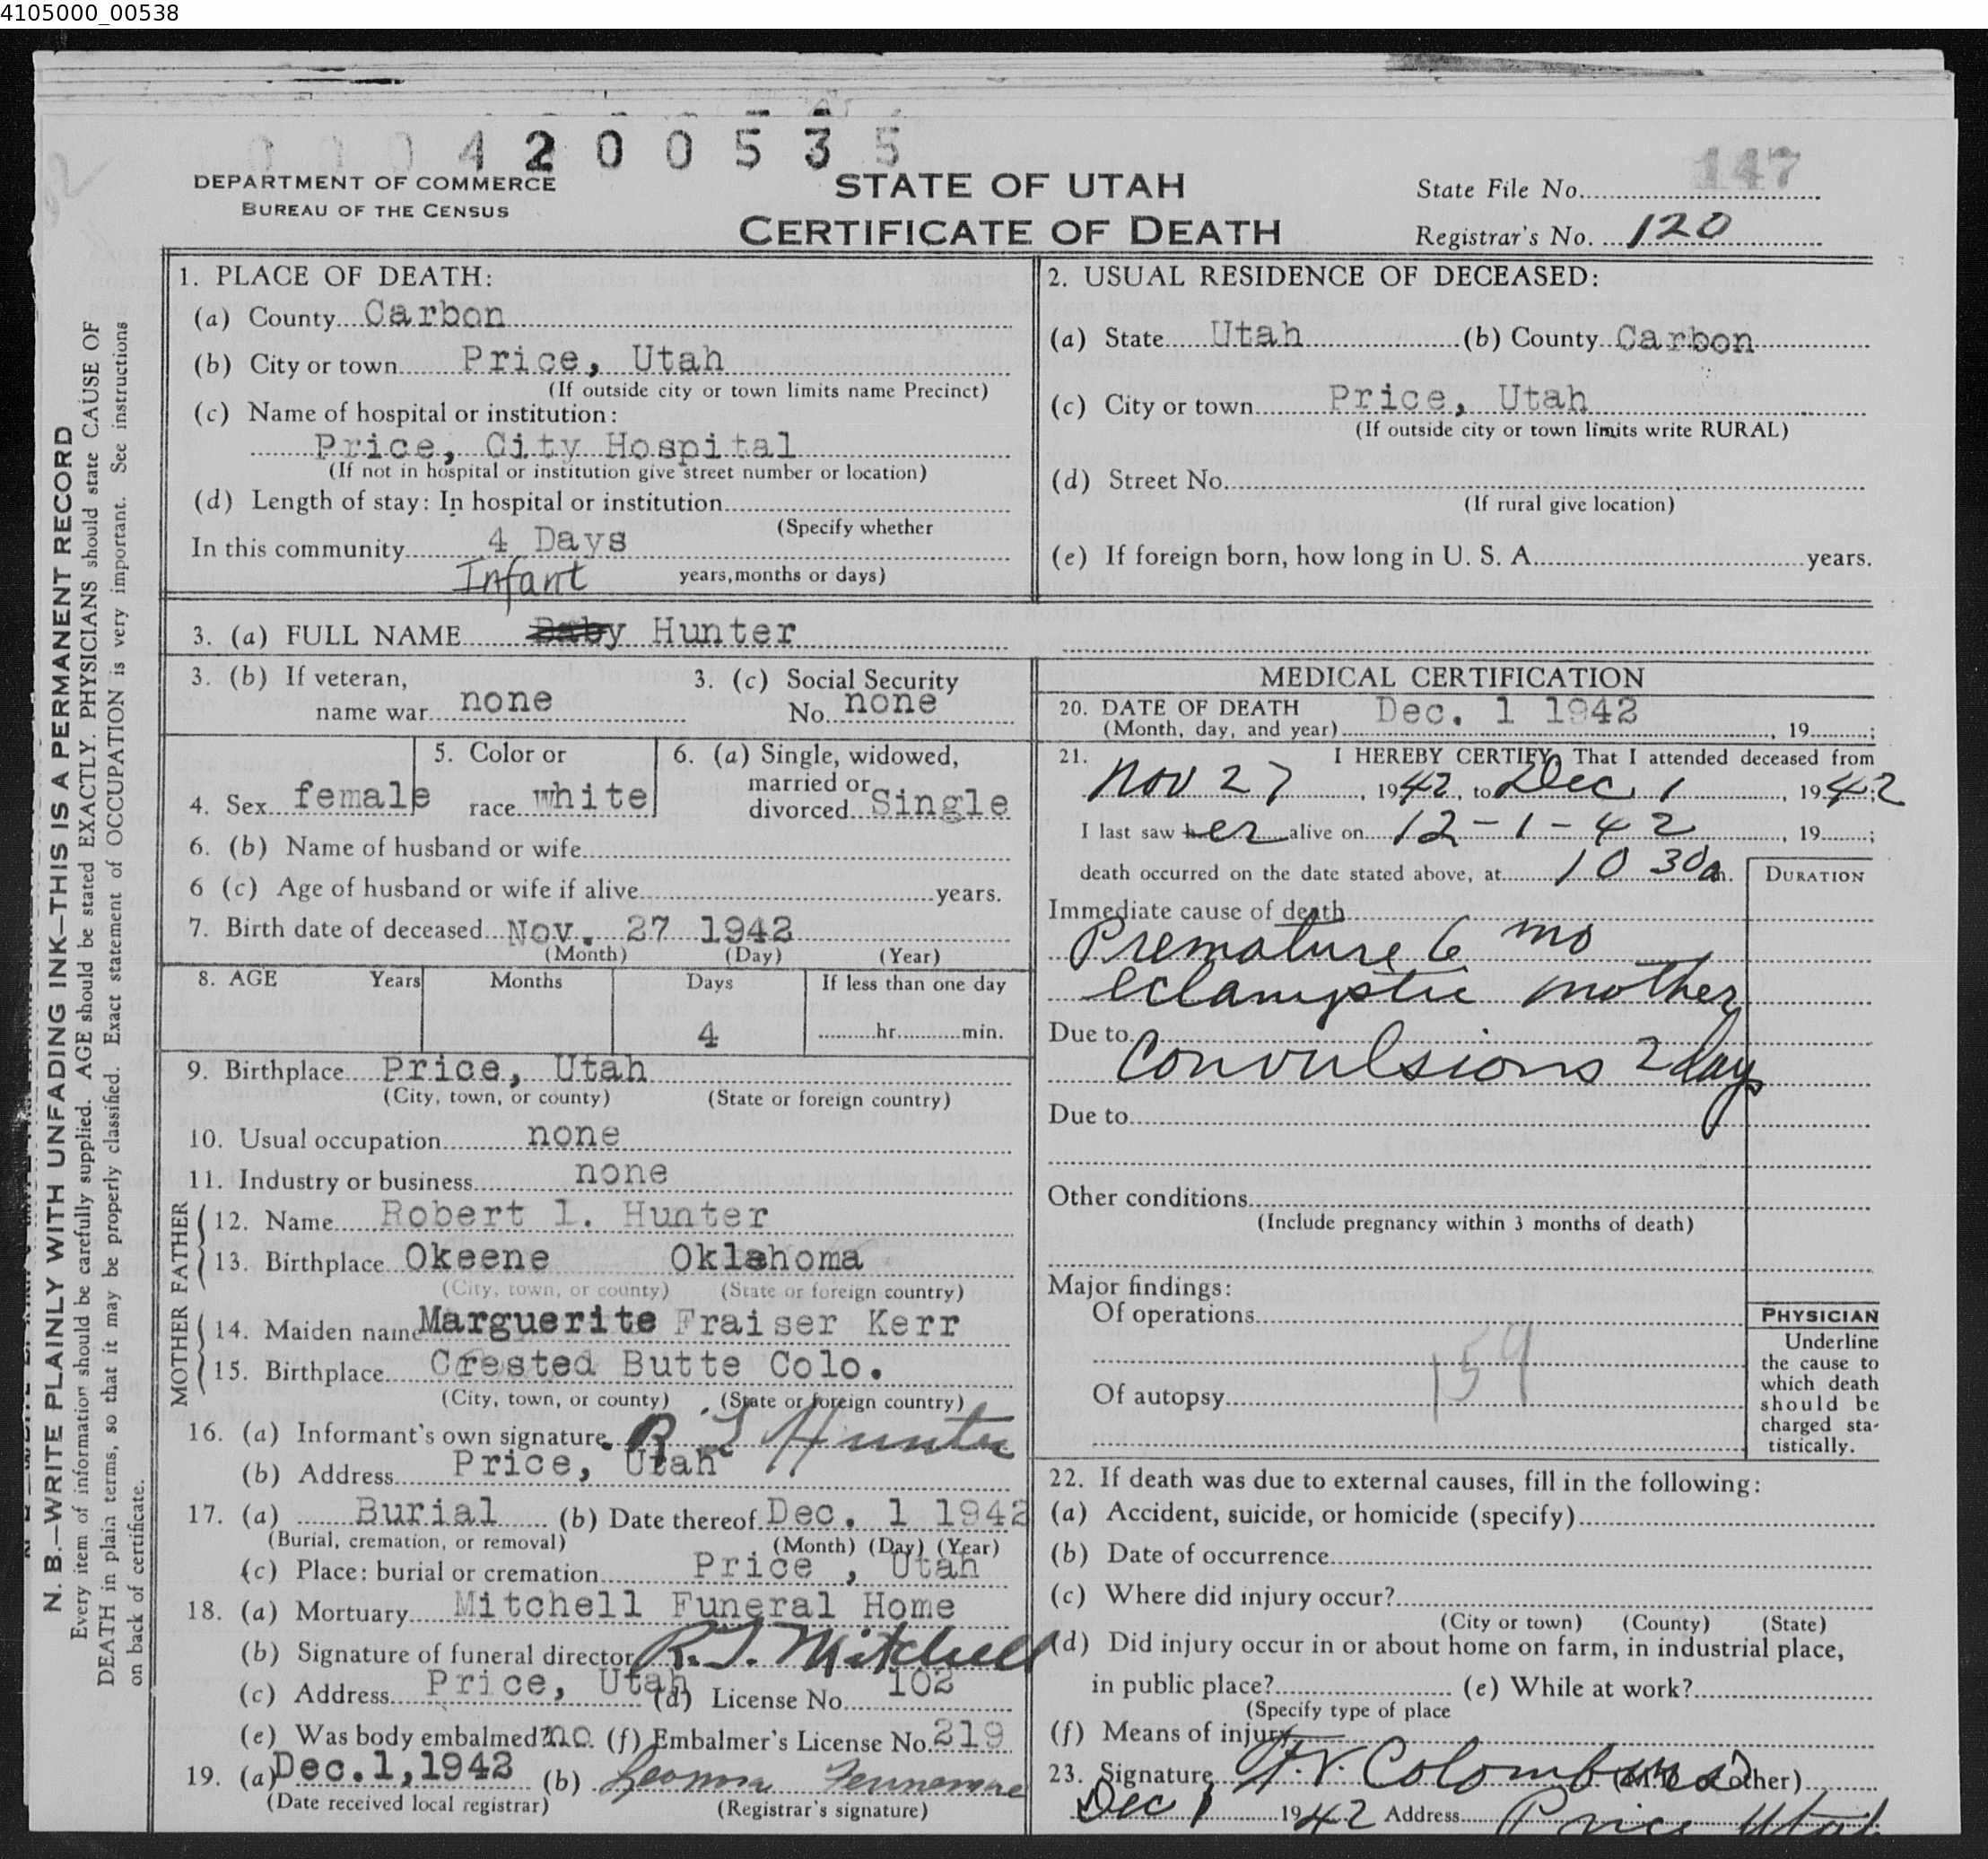 4105000_00538
0004200535
147
DEPARTMENT OF COMMERCE
BUREAU OF THE CENSUS
STATE OF UTAH
CERTIFICATE OF DEATH
State File No.
Registrar's No. 120
N. B.—WRITE PLAINLY WITH UNFADING INK—THIS IS A PERMANENT RECORD
Every item of information should be carefully supplied. AGE should be stated EXACTLY. PHYSICIANS should state CAUSE OF
DEATH in plain terms, so that it may be properly classified. Exact statement of OCCUPATION is very important. See instructions
on back of certificate.
1. PLACE OF DEATH:
(a) County Carbon
(b) City or town Price, Utah
(If outside city or town limits name Precinct)
(c) Name of hospital or institution:
Price, City Hospital
(If not in hospital or institution give street number or location)
(d) Length of stay: In hospital or institution
(Specify whether
In this community 4 Days
years, months or days)
2. USUAL RESIDENCE OF DECEASED:
(a) State Utah (b) County Carbon
(c) City or town Price, Utah
(If outside city or town limits write RURAL)
(d) Street No.
(If rural give location)
(e) If foreign born, how long in U. S. A. years.
Infant
3. (a) FULL NAME Baby Hunter
3. (b) If veteran,
name war none
3. (c) Social Security
No. none
4. Sex female
5. Color or
race white
6. (a) Single, widowed,
married or
divorced Single
6. (b) Name of husband or wife
6 (c) Age of husband or wife if alive years.
7. Birth date of deceased Nov. 27 1942
(Month) (Day) (Year)
8. AGE Years Months Days If less than one day
4 hr. min.
9. Birthplace Price, Utah
(City, town, or county) (State or foreign country)
10. Usual occupation none
11. Industry or business none
FATHER
12. Name Robert l. Hunter
13. Birthplace Okeene Oklahoma
(City, town, or county) (State or foreign country)
MOTHER
14. Maiden name Marguerite Fraiser Kerr
15. Birthplace Crested Butte Colo.
(City, town, or county) (State or foreign country)
16. (a) Informant's own signature R L Hunter
(b) Address Price, Utah
17. (a) Burial (b) Date thereof Dec. 1 1942
(Burial, cremation, or removal) (Month) (Day) (Year)
(c) Place: burial or cremation Price , Utah
18. (a) Mortuary Mitchell Funeral Home
(b) Signature of funeral director R. J. Mitchell
(c) Address Price, Utah (d) License No. 102
(e) Was body embalmed? no (f) Embalmer's License No. 219
19. (a) Dec.1,1942 (b)
(Date received local registrar) (Registrar's signature)
MEDICAL CERTIFICATION
20. DATE OF DEATH Dec. 1 1942
(Month, day, and year) , 19 ;
21. I HEREBY CERTIFY, That I attended deceased from
Nov 27, 1942, to Dec 1, 1942
I last saw her alive on 12-1-42, 19 ;
death occurred on the date stated above, at 10 30a m.
DURATION
Immediate cause of death
Premature 6 mo
eclamptic mother
Due to
Convulsions 2 days
Due to
Other conditions
(Include pregnancy within 3 months of death)
Major findings:
Of operations
159
Of autopsy
PHYSICIAN
Underline
the cause to
which death
should be
charged sta-
tistically.
22. If death was due to external causes, fill in the following:
(a) Accident, suicide, or homicide (specify)
(b) Date of occurrence
(c) Where did injury occur?
(City or town) (County) (State)
(d) Did injury occur in or about home on farm, in industrial place,
in public place? (e) While at work?
(Specify type of place
(f) Means of injury
23. Signature F.V. Colombo (M.D. or other)
Dec 1 1942 Address Price Utah